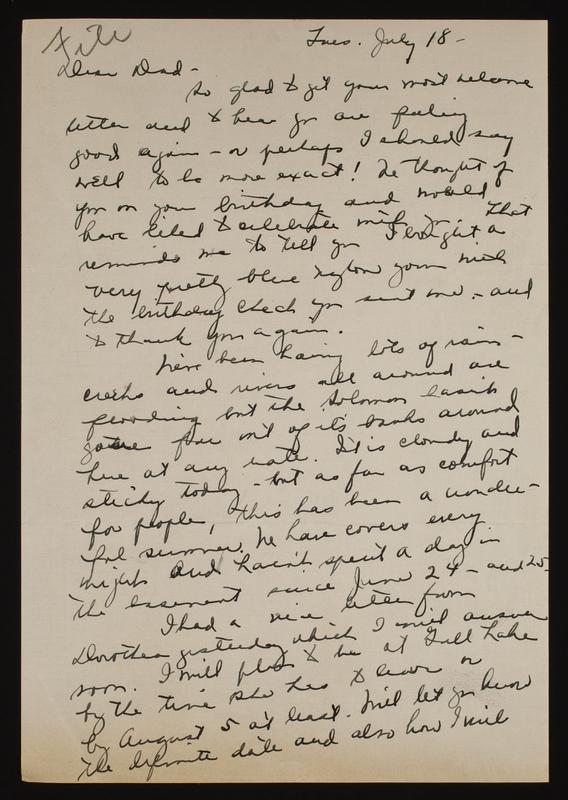 File
Tues. July 18 -
Dear Dad -
So glad to get your most welcome
letter and to hear you are feeling
good again - or perhaps I should say
well to be more exact! We thought of
you on your birthday and would
have liked to celebrate with you. That
reminds me to tell you I bought a
very pretty blue nylon gown with
the birthday check you sent me - and
to thank you again.
We've been having lots of rain -
creeks and rivers all around are
flooding but the Solomon hasn't
gone far out of it's banks around
here at any rate. It is cloudy and
sticky today - but as far as comfort
for people, this has been a wonder-
ful summer. We have covers every
night and hasn't spent a day in
the basement since June 24 - and 25 -
I had a nice letter from
Dorothea yesterday which I will answer
soon. I will plan to be at Gull Lake
by the time she has to leave or
by August 5 at least. Will let you know
the definite date and also how I will